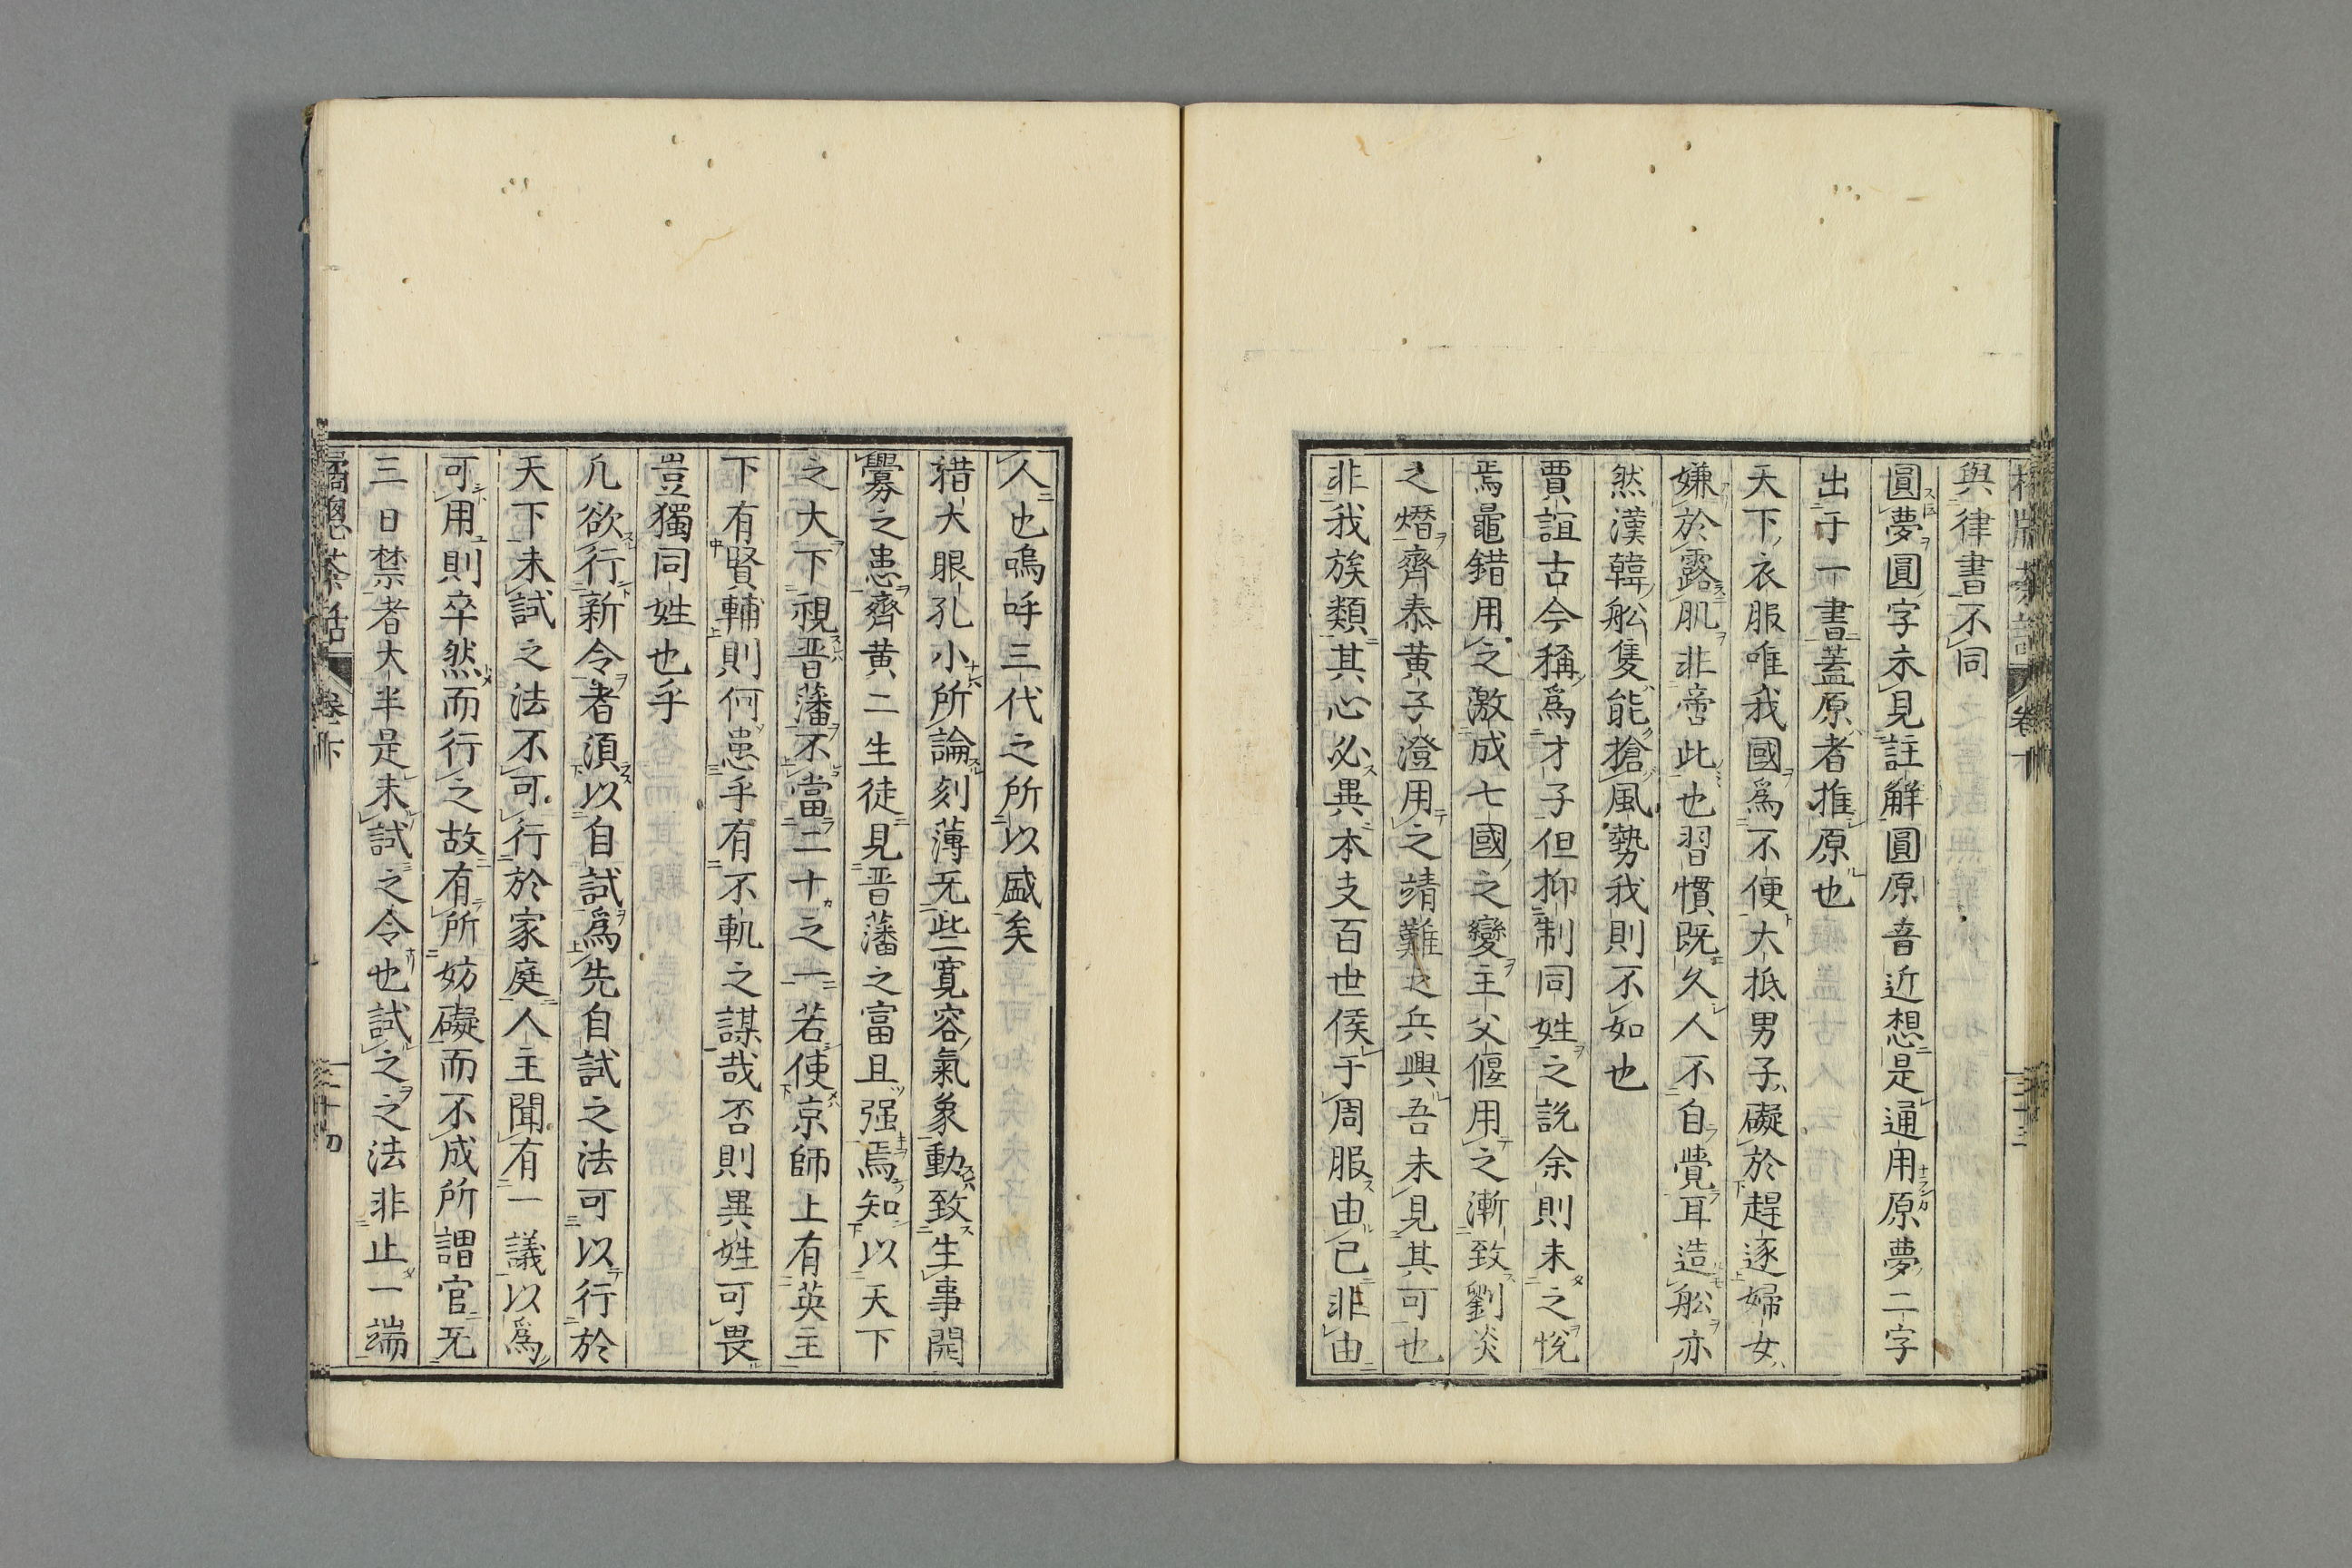 與律書不同
圓夢圓字未見註解圓原音近想是通用原夢二字
出于一書蓋原者推原也
天下衣服唯我國爲不便大抵男子礙於趕逐婦女
嫌於露肌非啻此也習慣既久人不自覺耳造舩亦
然漢韓舩隻能搶風勢我則不如也
賈誼古今稱爲才子但抑制同姓之說余則未之悅
焉鼂錯用之激成七國之變主父偃用之漸致劉炎
之熸齊泰黄子澄用之靖難之兵興吾未見其可也
非我族類其心必異本支百世侯于周服由己非由
人也嗚呼三代之所以盛矣
措大眼孔小所論刻薄无些寛容氣象動致生事開
釁之患齊黄二生徒見晋藩之富且强焉知以天下
之大下視晋藩不當二十之一若使京師上有英主
下有賢輔則何患乎有不軌之謀哉否則異姓可畏
豈獨同姓也乎
凡欲行新令者須以自試爲先自試之法可以行於
天下未試之法不可行於家庭人主聞有一議以爲
可用則卒然而行之故有所妨礙而不成所謂官无
三日禁者大半是未試之令也試之之法非止一端
茶話 卷下